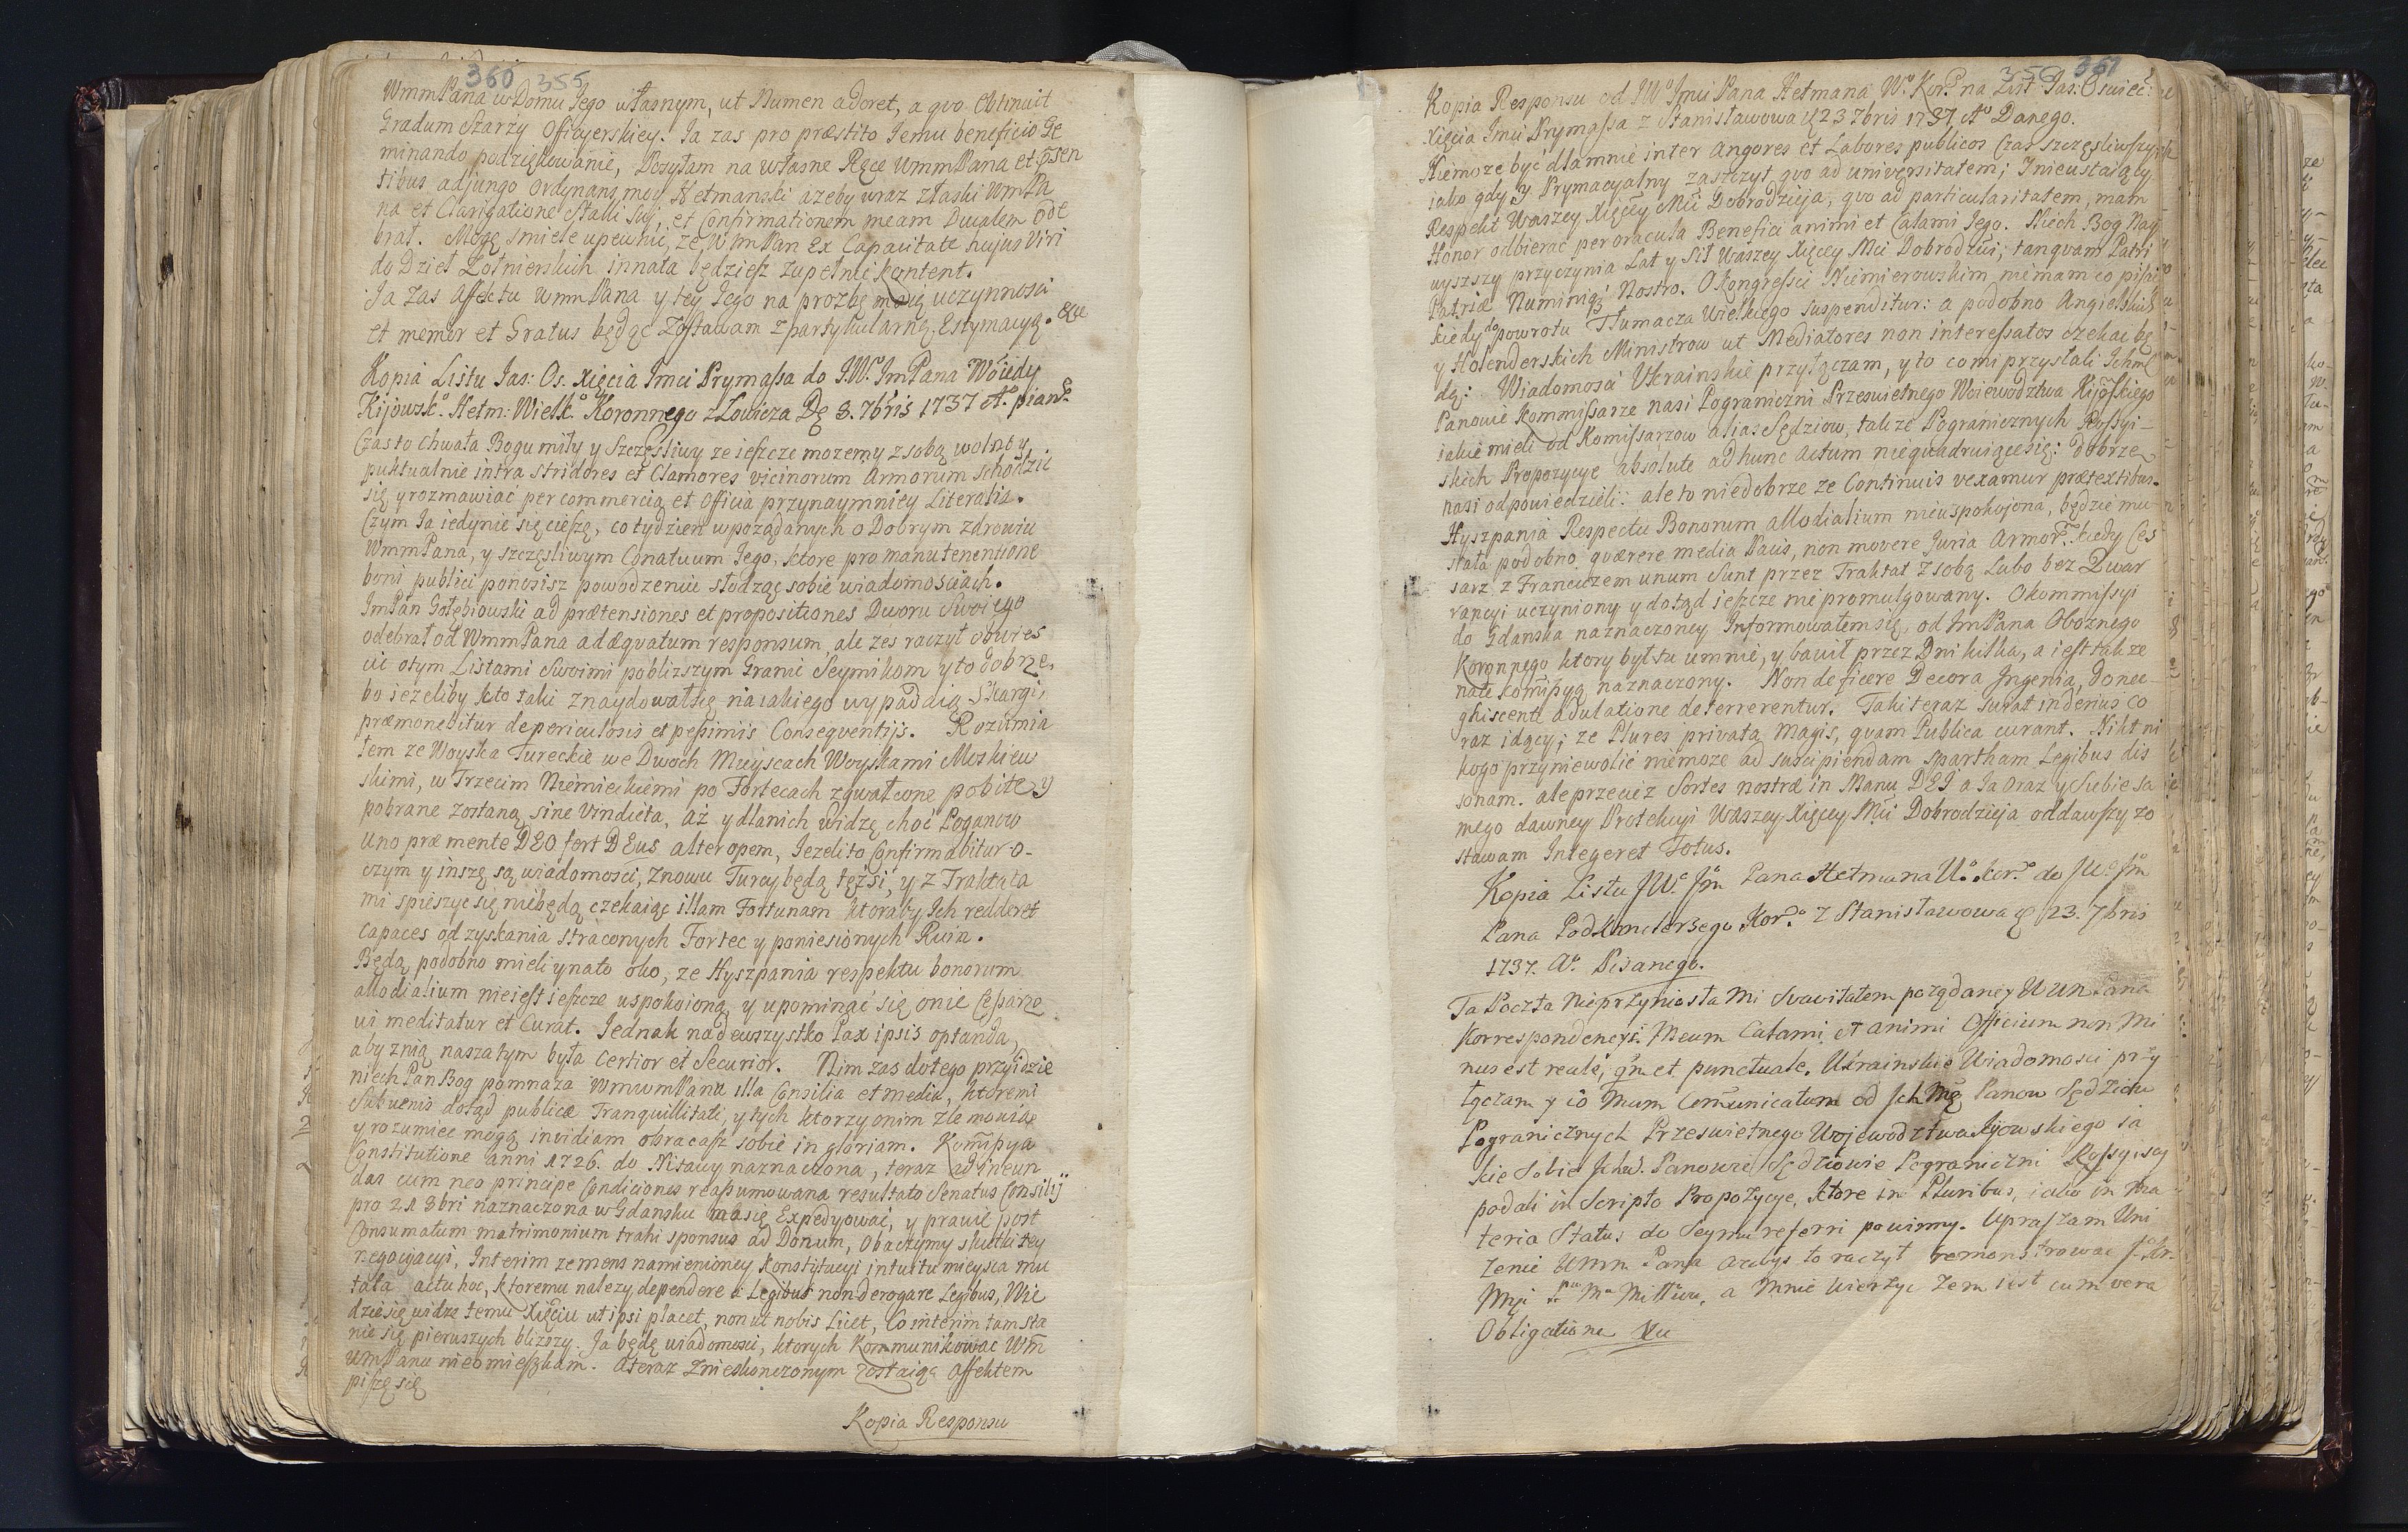 360 355
WmmPana w Domu Jego własnym, ut Numen adoret, a quo Obtinuit
Gradum Szarży Officyerskiey. Ja zas pro præstito Jemu beneficio Ge
minando podziękowanie, Posyłam na własne Ręce WmmPana et p̄sen
tibus adjungo Ordynans moy Hetmanski azeby wraz z łaski WmPa
na et Clarigatione Stalli Sui, et Confirmationem meam Ducalem ode
brał. Mogę smiele upewnić, ze WmPan Ex Capacitate hujus Viri
do Dzieł Zołnierskich innata będziesz zupełnie kontent.
Ja zas Affektu WmmPana y tey Jego na prozbę moię uczynnosci
et memor et Gratus będąc Zostawam z partykularną Estymacyą. &ce
Kopia Listu Jas: Os. Xięcia Imci Prymassa do J.W. ImPana Woiedy
Kijowsk. Hetm: Wielk. Koronnego z Łowicza D. 3. 7bris 1737 A. pian.
Czas to chwała Bogu miły y Szczęsliwy ze ieszcze mozemy z sobą wolno y
puktualnie intra stridores et Clamores vicinorum Armorum schodzić
się y rozmawiać per commercia et Officia przynaymniey Literalia.
Czym Ja iedynie się cieszę, co tydzien w pożądanych o Dobrym zdrowiu
WmmPana, y szczęsliwym Conatuum Jego, ktore pro manutenentione
boni publici ponosisz powodzeniu słodząc sobie wiadomosciach.
ImPan Gołębiowski ad prætensiones et propositiones Dworu Swoiego
odebrał od WmmPana adæquatum responsum, ale zes raczył obwies
cic o tym Listami Swoimi poblizszym Granic Seymikom y to dobrze,
bo iezeliby kto taki znaydował się na iakiego wypaddią Skargi,
præmonebitur de periculosis et pessimis Consequentijs. Rozumia
łem ze Woyska Tureckie we Dwoch Mieyscach Woyskami Moskiew
skimi, w Trzecim Niemieckiemi po Fortecach zgwałcone pobite y
pobrane zostaną sine Vindicta, aż y dla nich widzę choć Poganow
Uno præmente DEO fert DEus alter opem, Jezeli to Confirmabitur o
czym y inszę są wiadomosci, znowu Turcy będą tężsi, y z Traktata
mi spieszyc się niebędą czekaiąc illam Fortunam ktoraby Ich redderet
Capaces odzyskania straconych Fortec y poniesionych Ruin.
Będą podobno mieli y nato oko, ze Hyszpania respektu bonorum
allodialium nieiest ieszcze uspokoiona, y upominać się onie Cesarzo
wi meditatur et Curat. Jednak nadewszystko Pax ipsis optanda,
aby z nią nasza tym była Certior et Securior. Nim zas do tego przyidzie
niech Pan Bog pomnaza WmwmPanu illa Consilia et media, ktoremi
Subvenis dotąd publicæ Tranquillitati, y tych ktorzy onim zle mowią
y rozumiec mogą invidiam obracasz sobie in gloriam. Kom̄issya
Constitutione anni 1726. do Mitawy naznaczona, teraz ad ineun
das cum neo principe Condiciones reassumowana resultato Senatus Consilij
pro 21 8bri naznaczona w Gdansku ma się Expedyować, y prawie post
Consumatum matrimonium trahi sponsus ad Donum, Obaczymy skutki tey
negocyacyi, Interim ze mens namienioney Konstytucyi intuitu mieysca mu
tata actu hoc, ktoremu nalezy dependere a Legibus non derogare Legibus, Wie
dzie się widzę temu Xięciu ut ipsi placet, non ut nobis licet, Co interim tam sta
nie się pierwszych blizszy. Ja będę wiadomosci, ktorych Kommunikować Wm̄
WmPanu nieomieszkam. A teraz z nieskonczonym zostaiąc Affektem
piszę się
Kopia Responsu
356 361
Kopia Responsu od JW Jmci Pana Hetmana W. Kor. na List Jas: Oswiec:
Xięcia Jmci Prymassa z Stanisławowa D. 23 7bris 1737 A. Danego.
Niemoze byc dlamnie inter Angores et Labores publicos Czas szczęsliwszy,
iako gdy y Prymacyalny zaszczyt, quo ad universitatem; I nieustaiący
Respekt Waszey Xięcey Mci Dobrodzieja, quo ad particularitatem, mam
Honor odbierać per oracula Benefici animi et Calami Jego. Niech Bog Nay
wyszszy przyczynia Lat y Sił Waszey Xięcey Mci Dobrodzieiowi, tanquam Patri
Patriæ Numiniq; Nostro. O Kongressie Niemierowskim niemam co pisac
kiedy do powrotu Tłumacza Wielkiego suspenditur: a podobno Angielskich
y Holenderskich Ministrow ut Mediatores non interessatos czekac bę
dą: Wiadomosci Ukrainskie przyłączam, y to co mi przysłali Ichm̄c
Panowie Kommissarze nasi Pograniczni Przeswietnego Woiewodztwa Kijo͠skiego
iakie mieli od Komissarzow alias Sędziow, takze Pogranicznych Rossyi-
skich Propozycye absolute ad hunc actum niequadruiące się: dobrze
nasi odpowiedzieli: ale to niedobrze ze Continuis vexamur prætextibus.
Hyszpania Respectu Bonorum allodialium nieuspokojona, będzie mu-
siała podobno quærere media Pacis, non movere Juria Armor̄. kiedy Ces
sarz z Francuzem unum sunt przez Traktat z sobą Lubo bez Gwar
rancyi uczyniony y dotąd ieszcze nie promulgowany. O kommissyi
do Gdanska naznaczoney Informowałem się, od ImPana Oboznego
Koronnego ktory był tu umnie, y bawił przez Dni kilka, a iest takze
natę Kom̄issyą naznaczony. Non deficere Decora Ingenia, donec
gliscenti adulatione deterrerentur. Taki teraz swiat in deterius co
raz idący; ze Plures privata magis, quam Publica curant. Nikt ni
kogo przyniewolić niemoze ad suscipiendam Spartham Legibus dis
sonam. ale przeciez Sortes nostræ in Manu DEI a Ja oraz y Siebie sa
mego dawney Protekcyi Waszey Xięcey Mci Dobrodzieja oddawszy zo
stawam Integer et Totus.
Kopia Listu JW. Jm̄ Pana Hetmana W. Kor. do JW. Jm̄
Pana Podkomorzego Kor. z Stanisławowa D. 23. 7bris
1737. A. Pisanego.
Ta Poczta nieprzyniosła mi Suavitatem pożądaney WmPana
Korrespondencyi. Meum Calami et animi Officium non mi
nus est reale, q̄m et punctuale. Ukrainskie Wiadomosci przy
łączam y co Mum Com̄unicatum od Ich Mę Panow Sędziow
Pogranicznych Przeswietnego Wojewodztwa Kijowskiego ia
kie sobie Ichm. Panowie Sędziowie Pograniczni Rossyiscy
podali in Scripto Propozycye, ktore in Pluribus, iako in ma
teria Status do Seymu referri powinny. Upraszam Uni
zenie Wmm Pana azebys to raczył remonstrowac J. Kr.
Mci P. M. Miłłciwu, a mnie wierzyc zem iest cum vera
Obligatione &ce